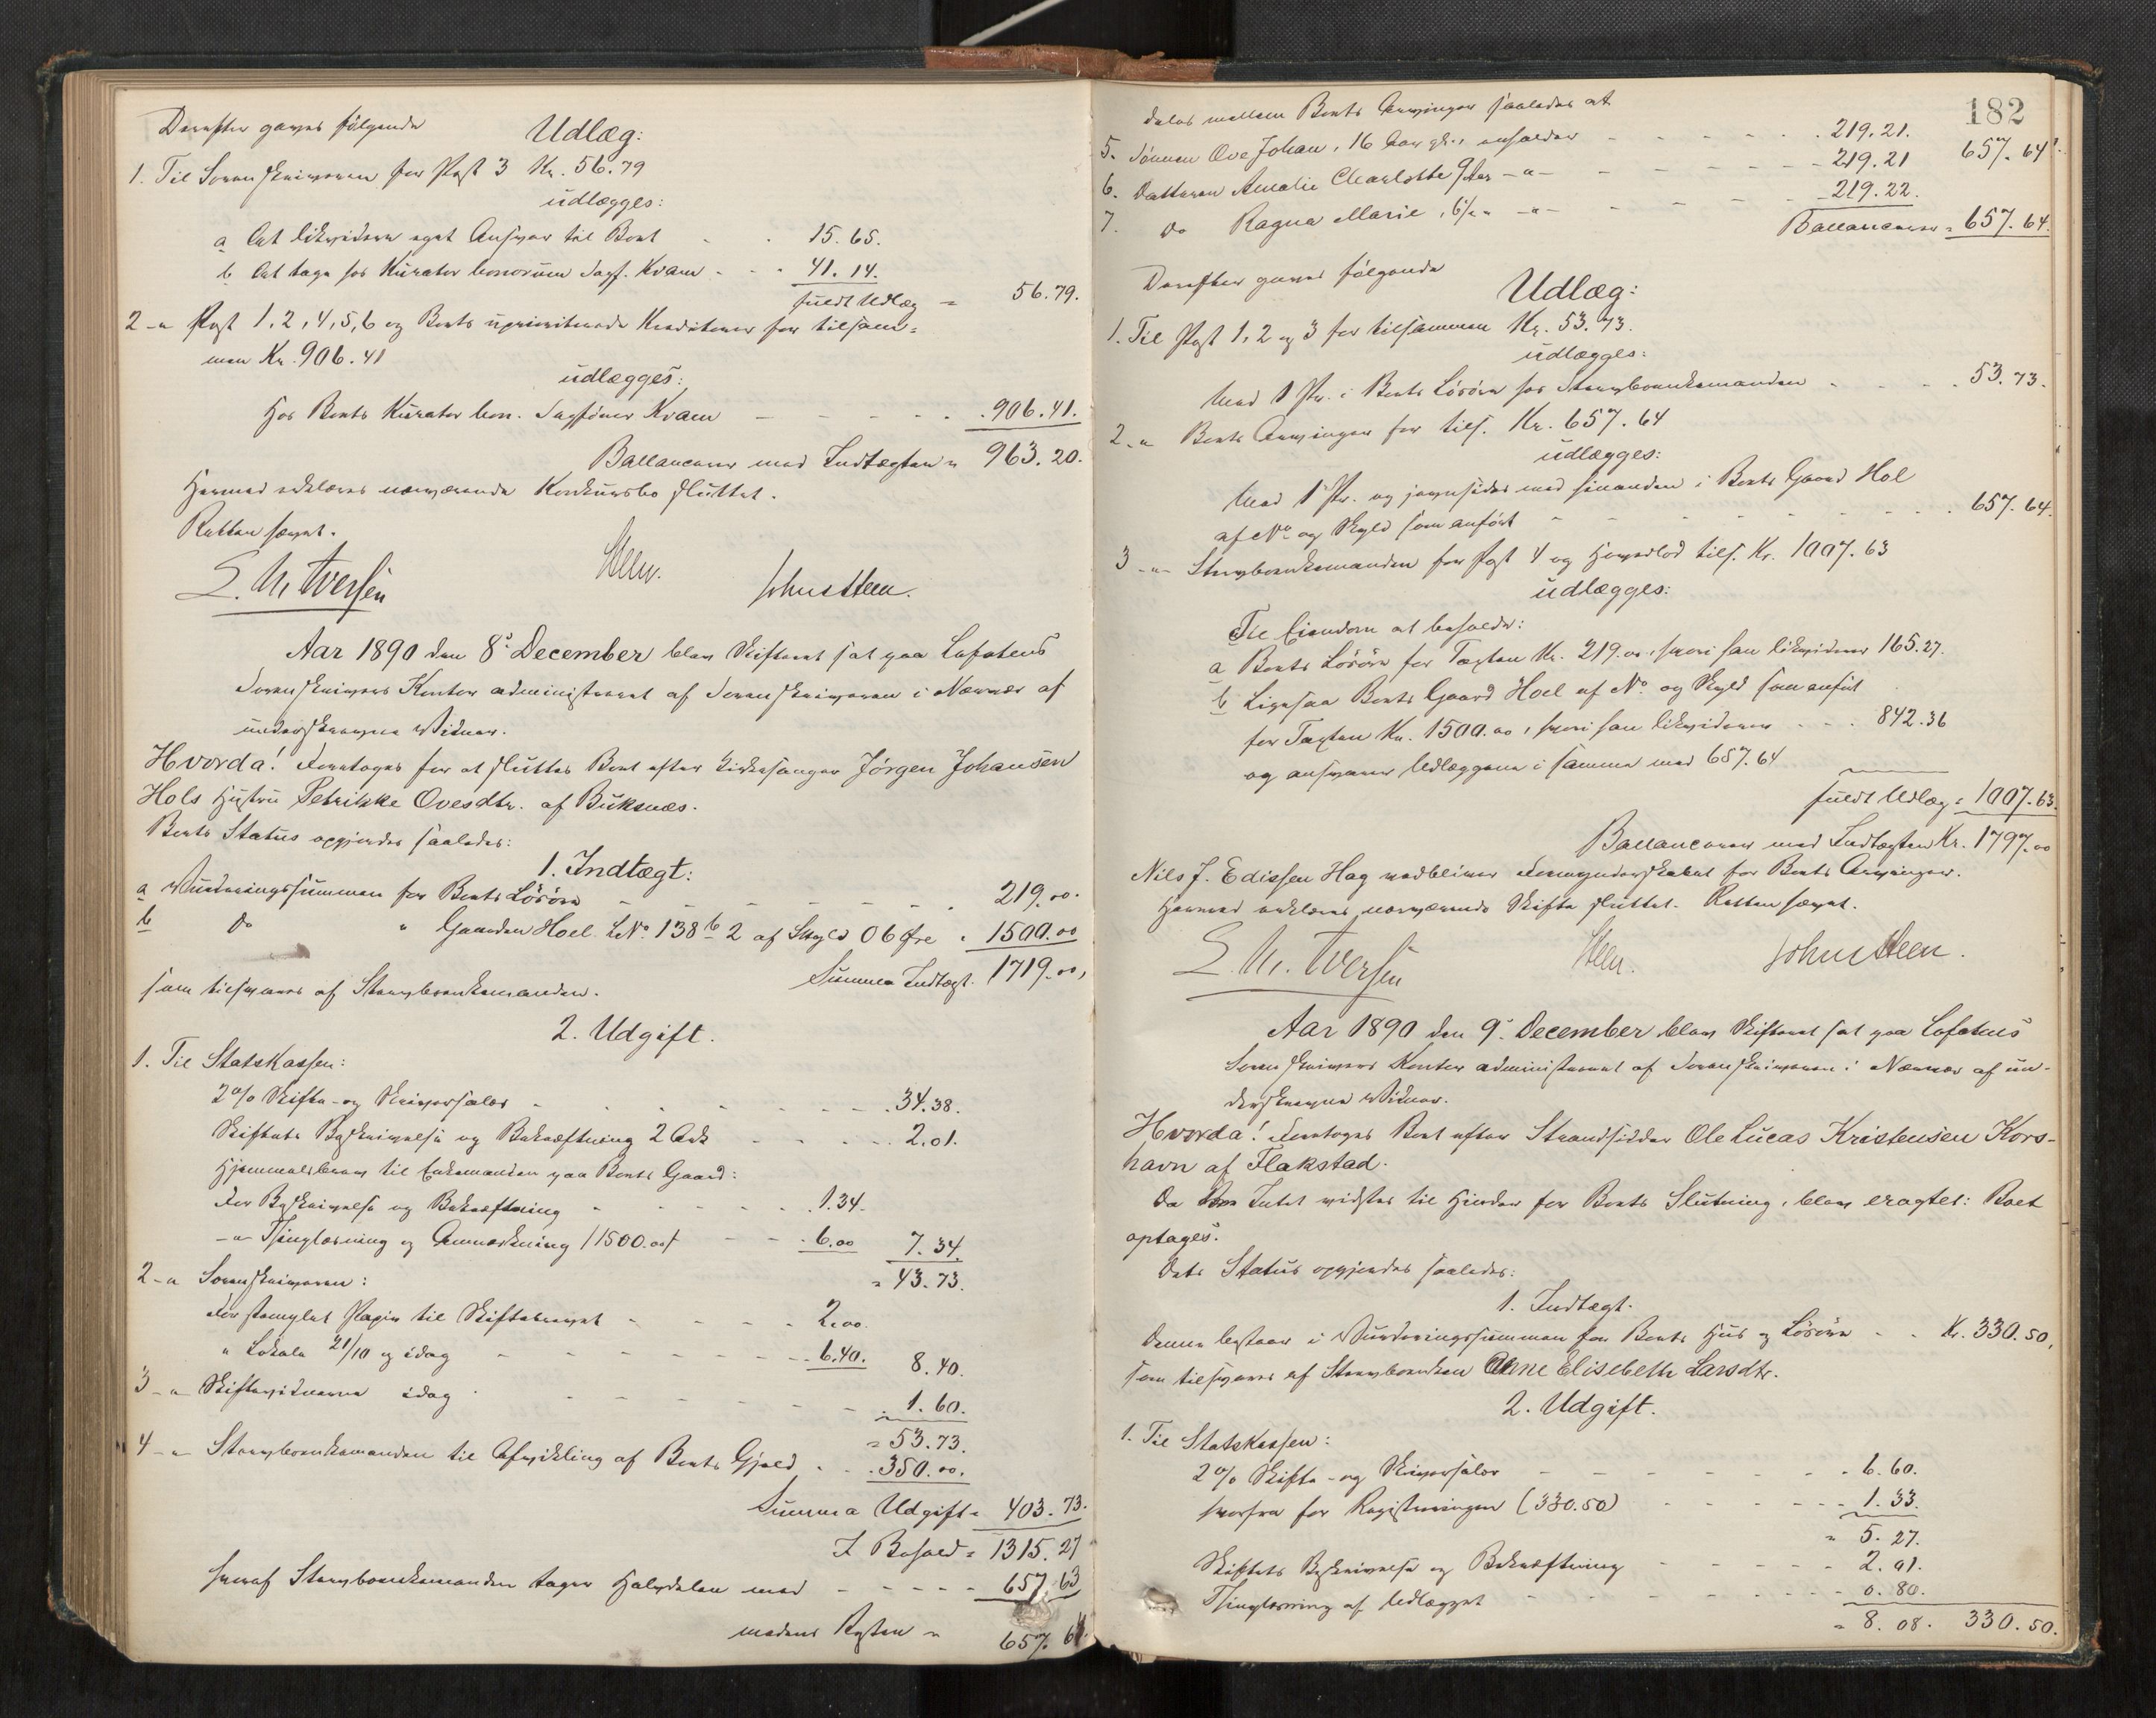 Derefter gaves følgende
Udlæg:
1. Til Sorenskriveren for Post 3 Kr. 56.79
udlægges:
a At likvidere eget Ansvar til Boet - - 15.65.
b At tage hos Kurator bonorum Sagf. Kvam - - - 41.14.
fuldt Udlæg = 56.79.
2 -"- Post 1, 2, 4, 5, 6 og Boets uprioriterede Kreditorer for tilsam=
men Kr. 906.41
udlægges:
Hos Boets Kurator bon. Sagfører Kvam - - - - - 906.41.
Ballancerer med Indtægten = 963.20.
Hermed erklæres nærværende Konkursbo sluttet.
Retten hævet.
Steen. John Steen.
Aar 1890 den 8de December blev Skifteret sat paa Lofotens
Sorenskrivers Kontor administreret af Sorenskriveren i Nærvær af
underskrevne Vidner.
Hvorda! Foretoges for at sluttes Boet efter Kirkesanger Jørgen Johansen
Hols Hustru Petrikke Ovesdtr. af Buksnæs.
Boets Status opgjordes saaledes:
1. Indtægt:
a Vurderingssummen for Boets Løsøre - - - - - - 219.00.
b Do " Gaarden Hoel L.No. 138 b 2 af Skyld 0 6 Øre " 1500.00
Summa Indtægt. 1719.00,
som tilsvares af Stervboenkemanden.
2. Udgift.
1. Til Statskassen:
2% Skifte- og Skriversalær - - - - - - - 34.38.
Skiftets Beskrivelse og Bekræftning 2 Ark - - - - 2.01.
Hjemmelsbrev til Enkemanden paa Boets Gaard:
For Beskrivelse og Bekræftning - - - - - 1.34.
-"- Thinglæsning og Anmærkning /1500.00/ - - - 6.00 7.34.
= 43.73.
2 -"- Sorenskriveren:
For stemplet Papir til Skiftebrevet - - - - 2.00.
" Lokale 21/10 og idag - - - - - - 6.40. 8.40.
3 -"- Skiftevidnerne idag - - - - - - - 1.60.
= 53.73.
4 -"- Stervboenkemanden til Afvikling af Boets Gjæld - - 350.00.
Summa Udgift = 403.73.
I Behold = 1315.27
hvoraf Stervboenkemanden tager Halvdelen med - - - - - 657.63
medens Resten = 657.64.
182
deles mellem Boets Arvinger saaledes at
657.64
5. Sønnen Ove Johan, 16 Aar gl., erholder - - - - - - 219.21.
6. Datteren Amalie Charlotte 9 Aar -"- - - - - - 219.21
7. Do Ragna Marie, 6 1/2 " -"- - - - - - 219.22.
Ballancerer = 657.64.
Derefter gaves følgende
Udlæg:
1. Til Post 1, 2 og 3 for tilsammen Kr. 53.73.
udlægges:
Med 1 Pr. i Boets Løsøre hos Stervboenkemanden - - - - 53.73.
2 -"- Boets Arvinger for tils. Kr. 657.64
udlægges:
Med 1 Pr. og jevnsides med hinanden i Boets Gaard Hol
af No. og Skyld som anført - - - - - - - - 657.64.
3 -"- Stervboenkemanden for Post 4 og Hovedlod tils. Kr. 1007.63
udlægges:
Til Eiendom at beholde:
a Boets Løsøre for Taxten Kr. 219.00, hvori han likviderer 165.27.
b Ligesaa Boets Gaard Hoel af No. og Skyld som anført
for Taxten Kr. 1500.00, hvori han likviderer - - - 842.36
og ansvarer Udlæggene i samme med 657.64
fuldt Udlæg = 1007.63.
Ballancerer med Indtægten Kr. 1797.00
Nils J. Edissen Hag vedbliver Formynderskabet for Boets Arvinger.
Hermed erklæres nærværende Skifte sluttet. Retten hævet.
Steen. John Steen.
Aar 1890 den 9de December blev Skifteret sat paa Lofotens
Sorenskrivers Kontor administreret af Sorenskriveren i Nærvær af un-
derskrevne Vidner.
Hvorda! Foretoges Boet efter Strandsidder Ole Lucas Kristensen Kors-
havn af Flakstad.
Da Intet vidstes til Hinder for Boets Slutning, blev eragtet: Boet
optages.
Dets Status opgjordes saaledes:
1. Indtægt.
Denne bestaar i Vurderingssummen for Boets Hus og Løsøre - - Kr. 330.50,
som tilsvares af Stervboenken Anne Elisebeth Larsdtr.
2. Udgift.
1. Til Statskassen:
2% Skifte- og Skriversalær - - - - - - - 6.60.
hvorfra for Registreringen (330.50) - - - - - 1.33.
= 5.27.
Skiftets Beskrivelse og Bekræftning - - - - - 2.01.
Thinglæsning af Udlægget - - - - - - - 0.80.
= 8.08. 330.50.